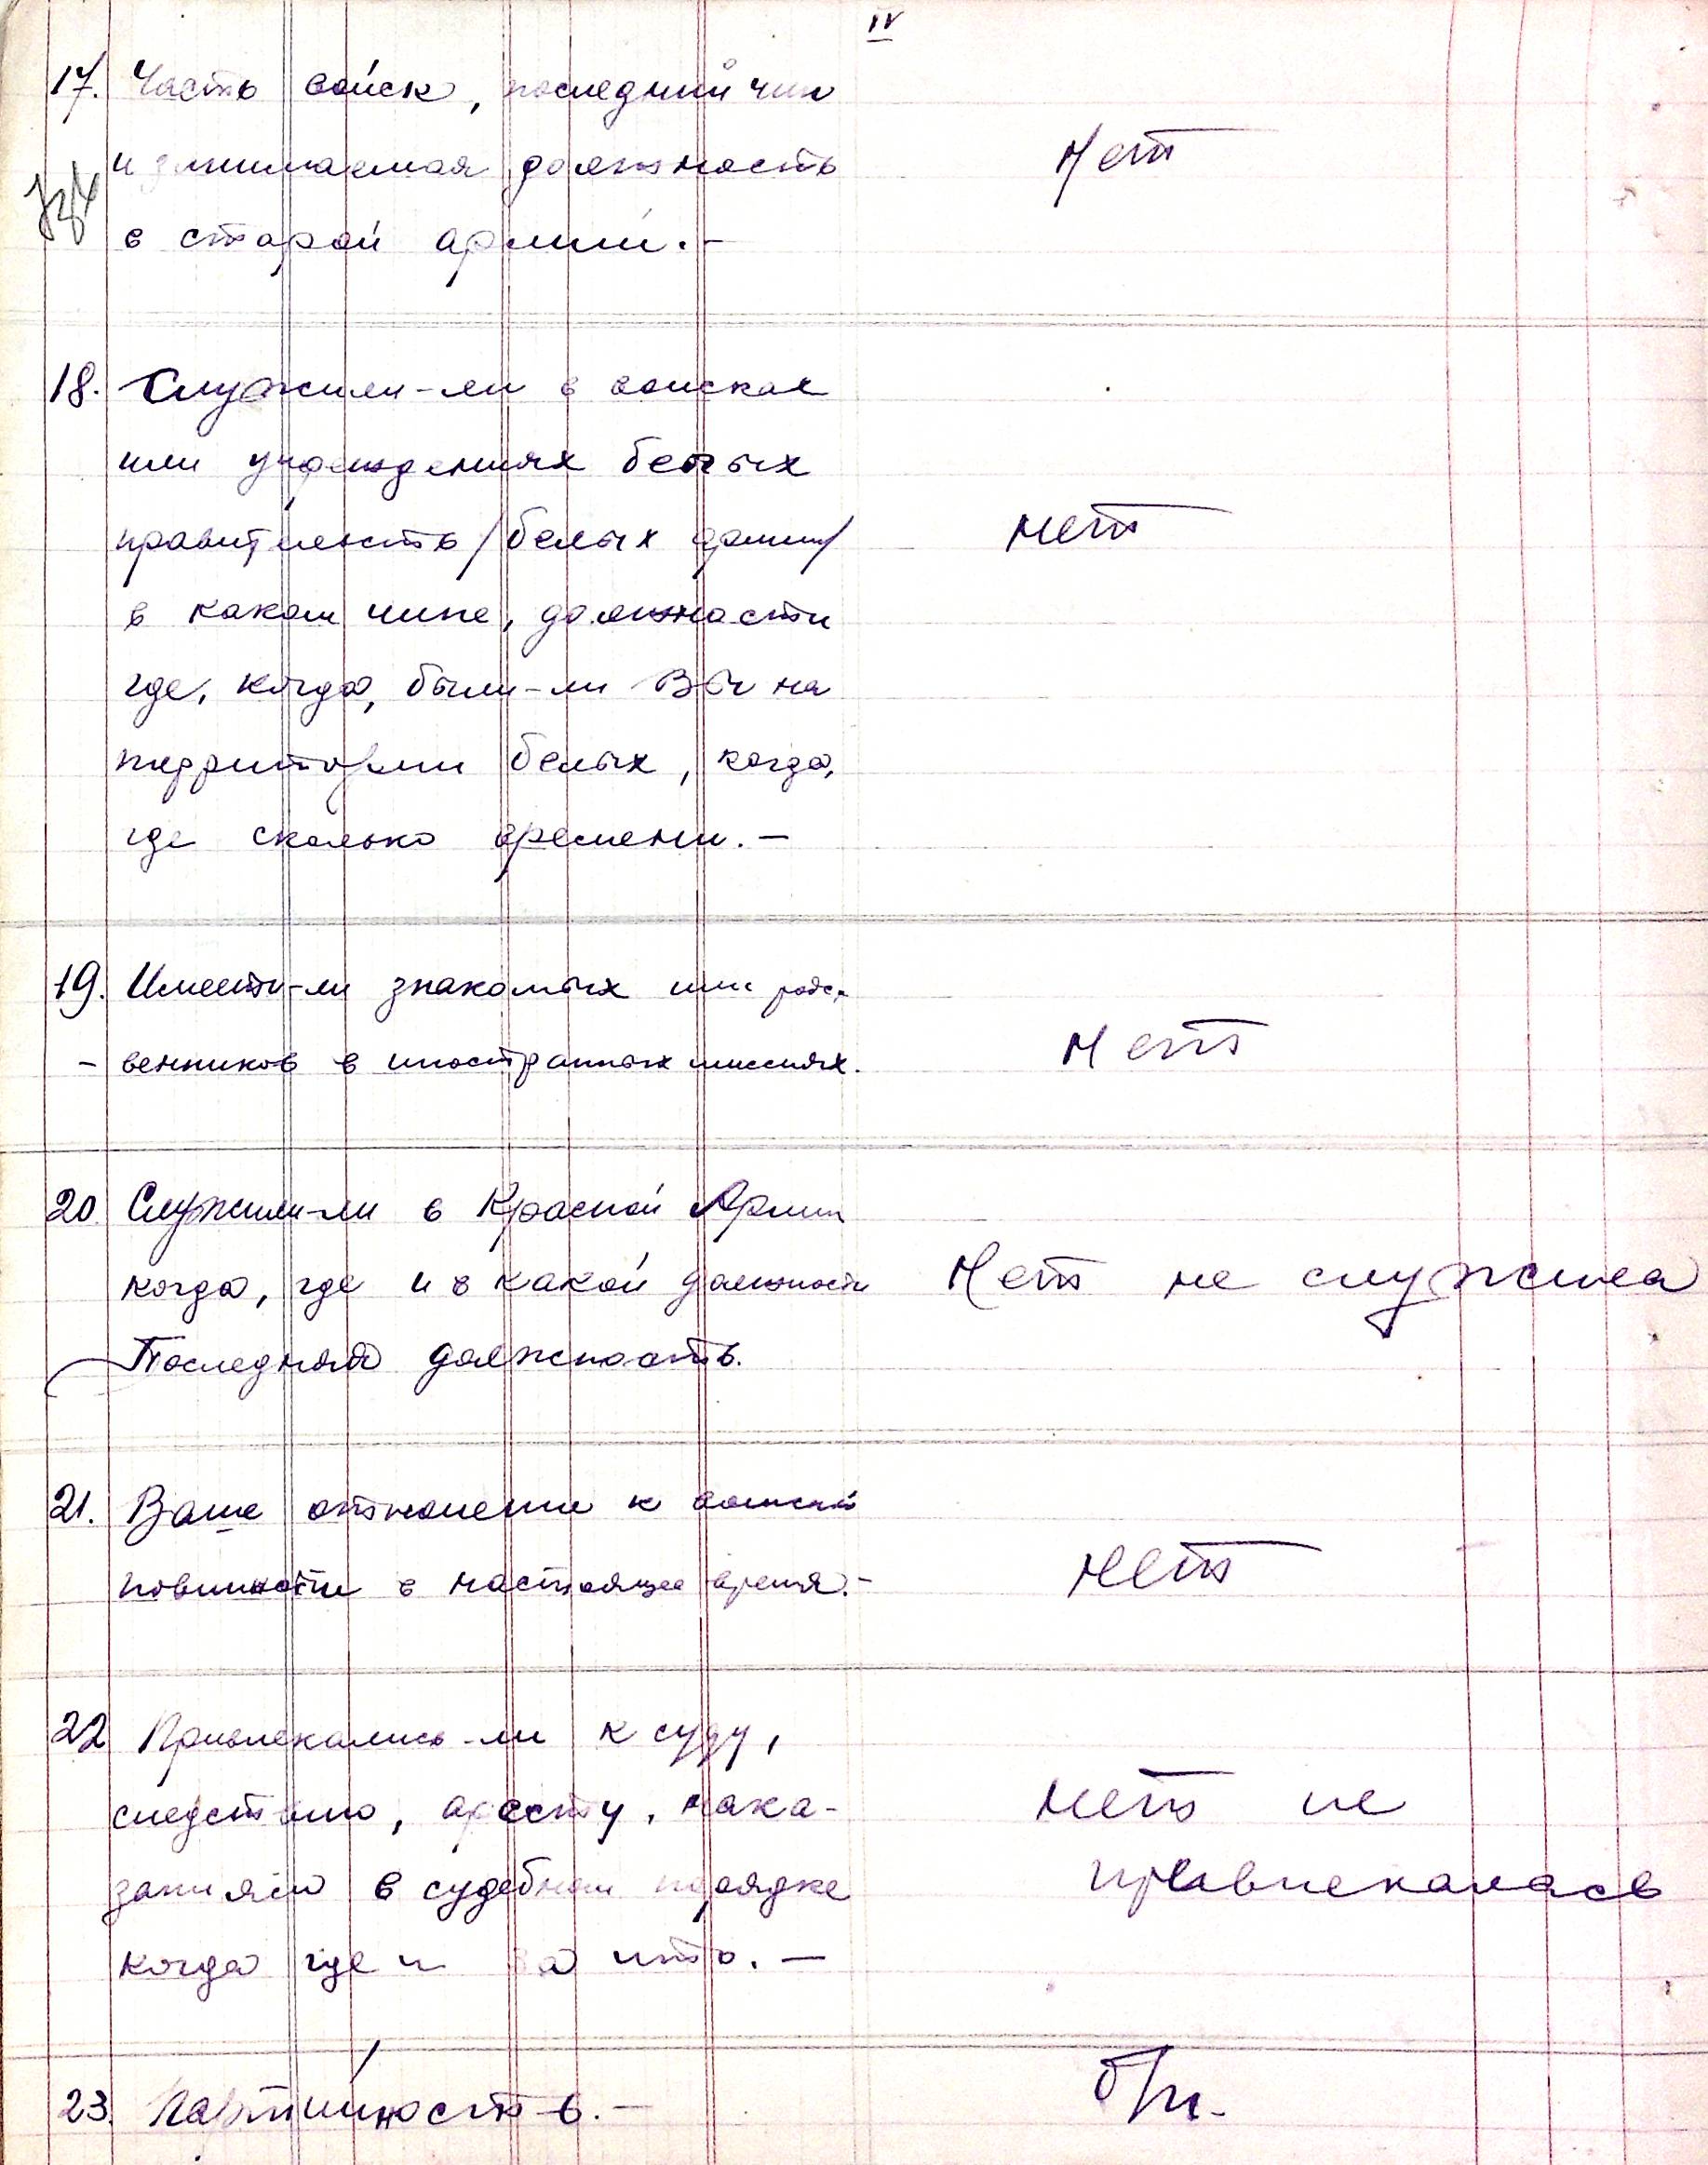 IV
17. Часть войск, последний чин
и занимаемая должность
в старой армии.-
Нет
18. Служили-ли в войсках
или учреждениях белых
правительств /белых армий/
в каком чине, должности
где, когда, были-ли Вы на
территории белых, когда,
где сколько времени. -
Нет
19. Имеете-ли знакомых или родс-
- венников в иностранных миссиях.
Нет
20 Служили-ли в Красной Армии
когда, где и в какой должности
Последняя должность.
Нет не служила
21. Ваше отношение к воинской
повинности в настоящее время.-
Нет
22 Привлекались-ли к суду,
следствию, аресту, нака-
заниям в судебном порядке
когда где и за что. -
Нет не
привлекалась
23. Партийность. -
б/п.